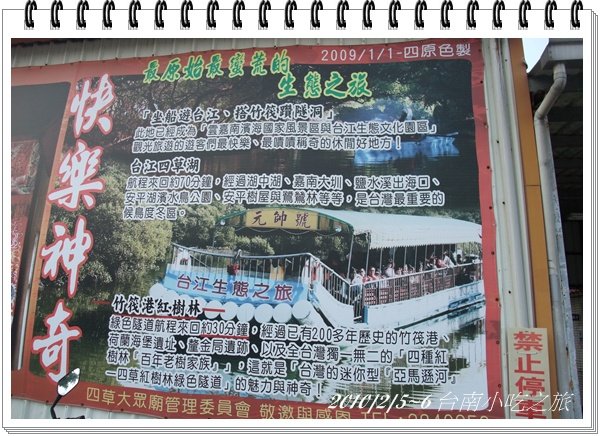 2009/1/1-四原色製
最原始最蠻荒的
生態之旅
快樂神奇
「坐船遊台江、搭竹筏鑽隧洞」
此地已經成為「雲嘉南濱海國家風景區與台江生態文化園區」
觀光旅遊的遊客們最快樂、最嘖嘖稱奇的休閒好地方！
台江四草湖
航程來回約70分鐘，經過湖中湖、嘉南大圳、鹽水溪出海口、
安平湖濱水鳥公園、安平樹屋與鷺鷥林等等，是台灣最重要的
候鳥度冬區。
元帥號
台江生態之旅
竹筏港紅樹林
綠色隧道航程來回約30分鐘，經過已有200多年歷史的竹筏港、
荷蘭海堡遺址、釐金局遺跡、以及全台灣獨一無二的「四種紅
樹林「百年老樹家族」」，這就是「台灣的迷你型「亞馬遜河」
—四草紅樹林綠色隧道」的魅力與神奇！
四草大眾廟管理委員會 敬邀與感恩
禁止停車
2010|2|5~6 台南小吃之旅